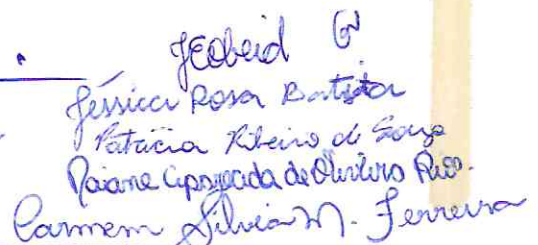 JEobeid
Jéssica Rosa Batista
Patrícia Ribeiro de Souza
Daiane Aparecida de Oliveira
Carmem Silvia M. Ferreira